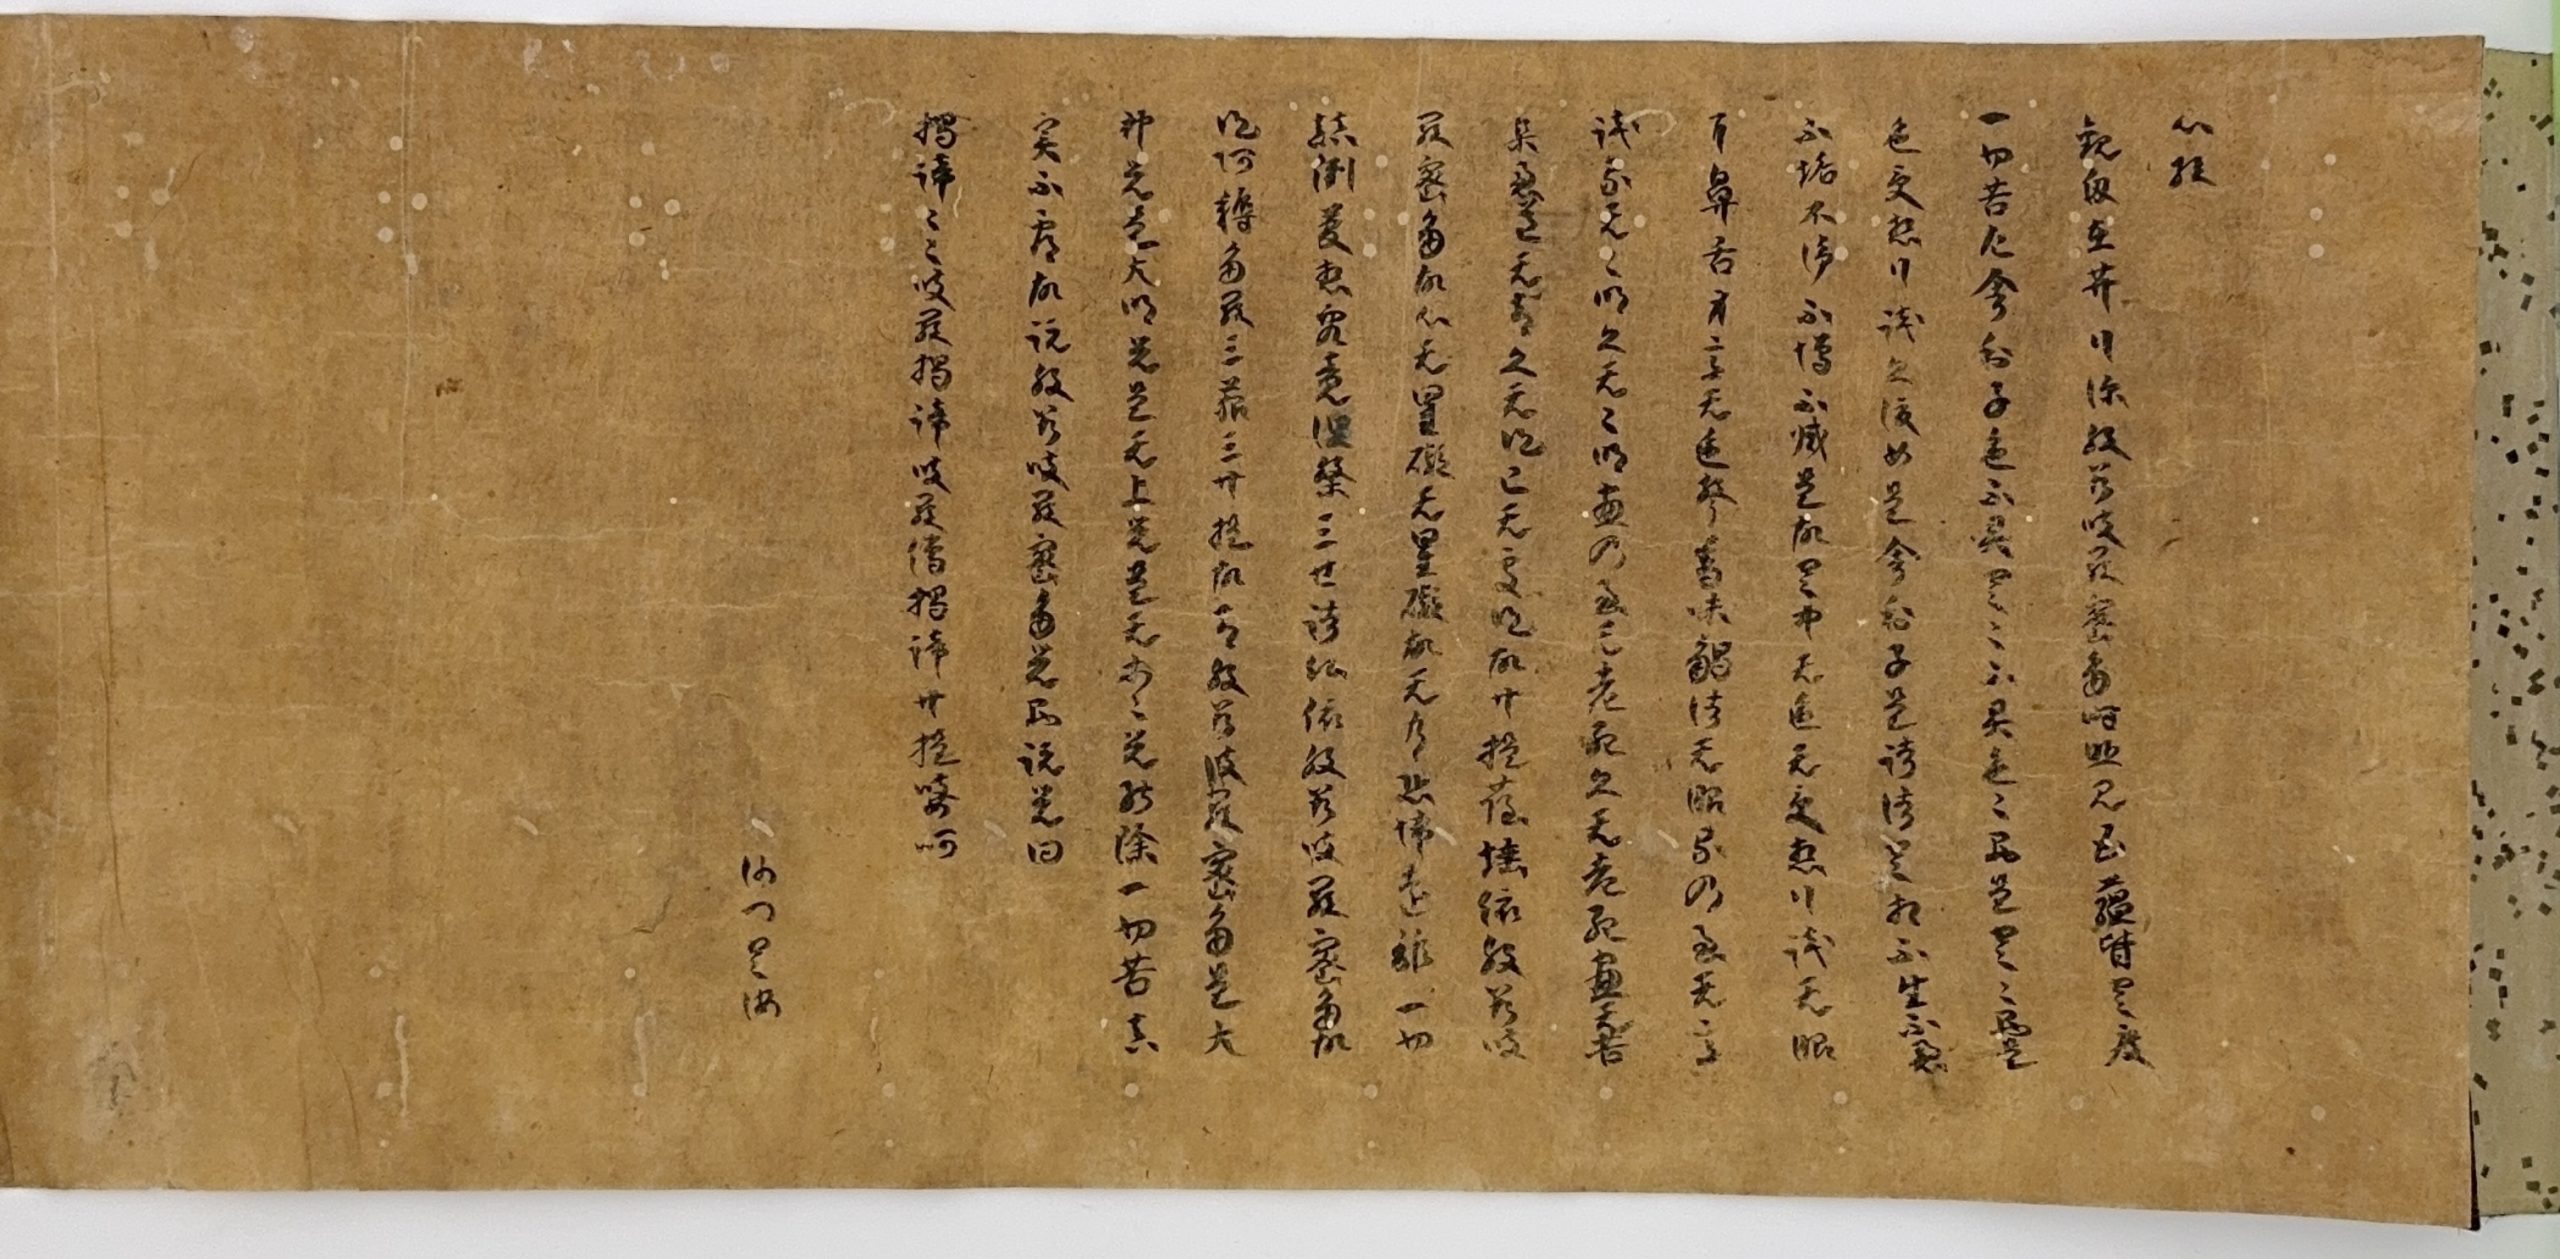 心経
観自在菩行深般若波羅密多時照見五蘊皆空度
一切苦厄舎利子色不異空々不異色々即是空々即是
色受想行識亦復如是舎利子是諸法空相不生不滅
不垢不浄不増不減是故空中无色无受想行識无眼
耳鼻舌身意无色声香味触法无眼界乃至无意
識界无々明亦无々明尽乃至无老死亦无老死尽无苦
集滅道无智亦无得已无所得故菩提薩埵依般若波
羅密多故心无罣礙无罣礙故无有恐怖遠離一切
顛倒夢想究竟涅槃三世諸仏依般若波羅密多故
得阿耨多羅三藐三菩提故知般若波羅密多是大
神呪是大明呪是无上呪是无等々呪能除一切苦真
実不虚故説般若波羅密多呪即説呪曰
揭諦々々波羅揭諦波羅僧揭諦菩提娑呵
沙門空海